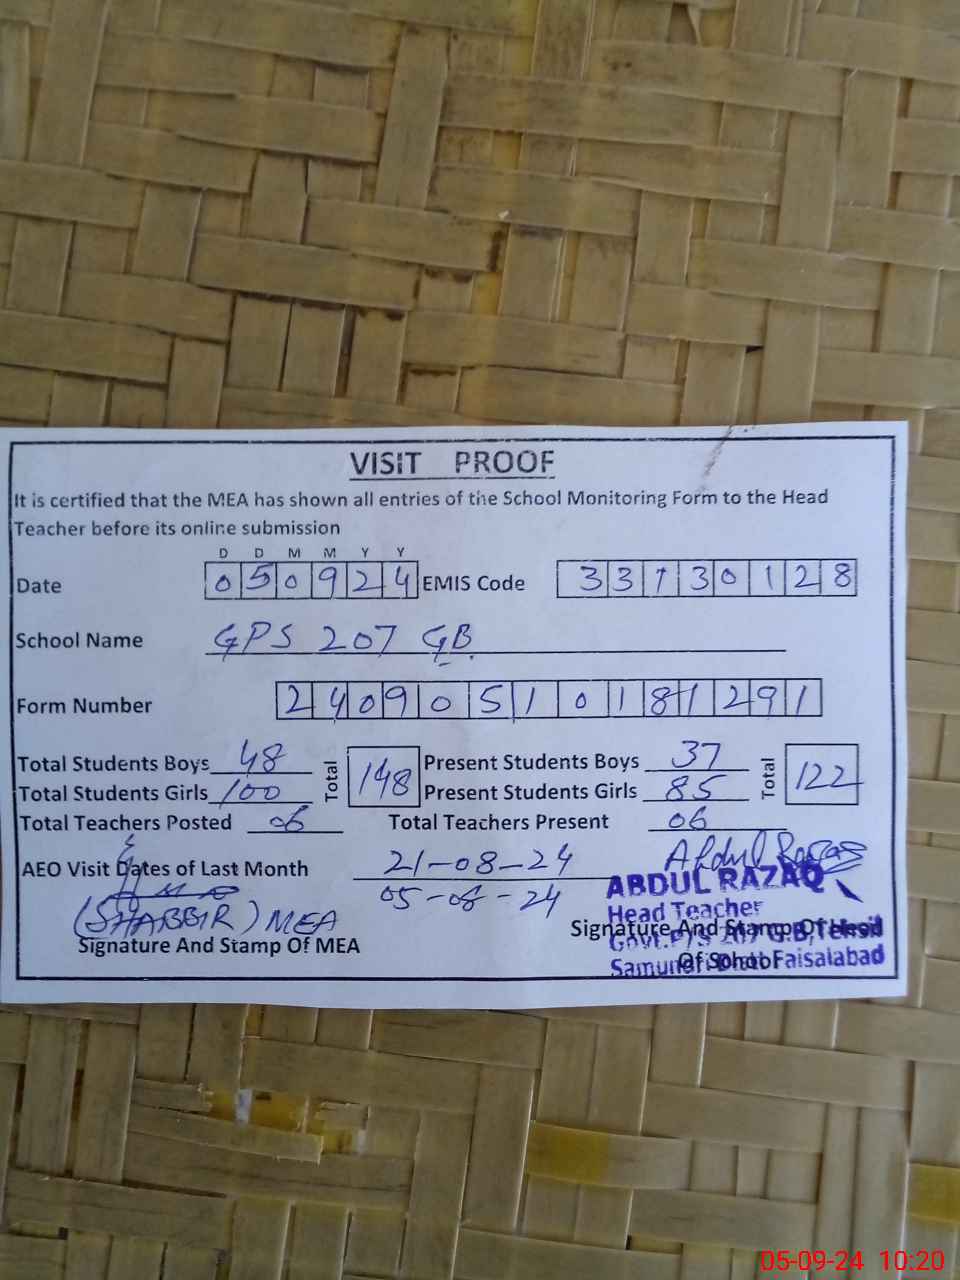 VISIT PROOF
It is certified that the MEA has shown all entries of the School Monitoring Form to the Head
Teacher before its online submission
D D M M Y Y
Date 050924 EMIS Code 33130128
School Name GPS 207 GB.
Form Number 2409051018 1291
Total Students Boys 48 Total 148 Present Students Boys 37 Total 122
Total Students Girls 100 Present Students Girls 85
Total Teachers Posted 06 Total Teachers Present 06
AEO Visit Dates of Last Month 21-08-24
05-08-24
Abdul Razaq
ABDUL RAZAQ
Head Teacher
Govt. P/S 207 G.B, Tehsil
Samundri Distt Faisalabad
(SHABBIR) MEA
Signature And Stamp Of MEA
Signature And Stamp Of Head
Of School
05-09-24 10:20